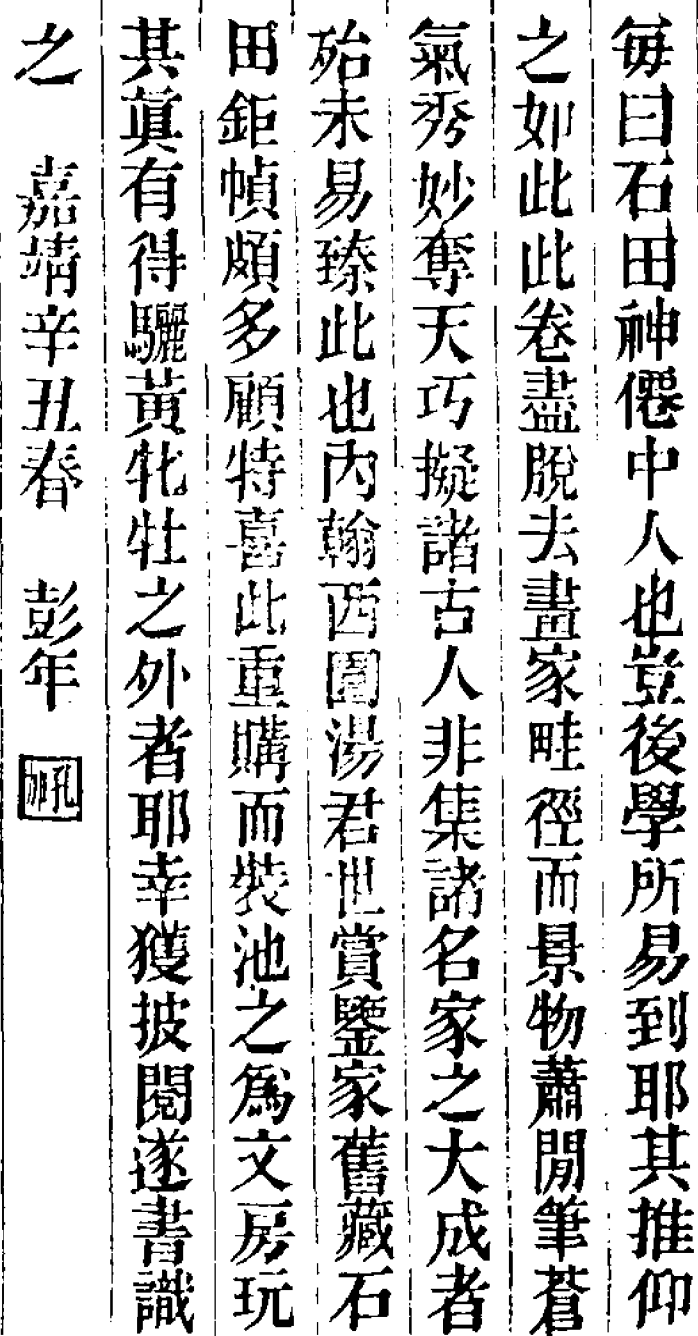 每曰石田神僊中人也豈後學所易到耶其推仰
之如此此卷盡脫去畫家畦徑而景物蕭閒筆蒼
氣秀妙奪天巧擬諸古人非集諸名家之大成者
殆未易臻此也內翰西園湯君世賞鑒家舊藏石
田鉅幀頗多顧特喜此重購而裝池之爲文房玩
其眞有得驪黃牝牡之外者耶幸獲披閱遂書識
之　嘉靖辛丑春　彭年
孔加